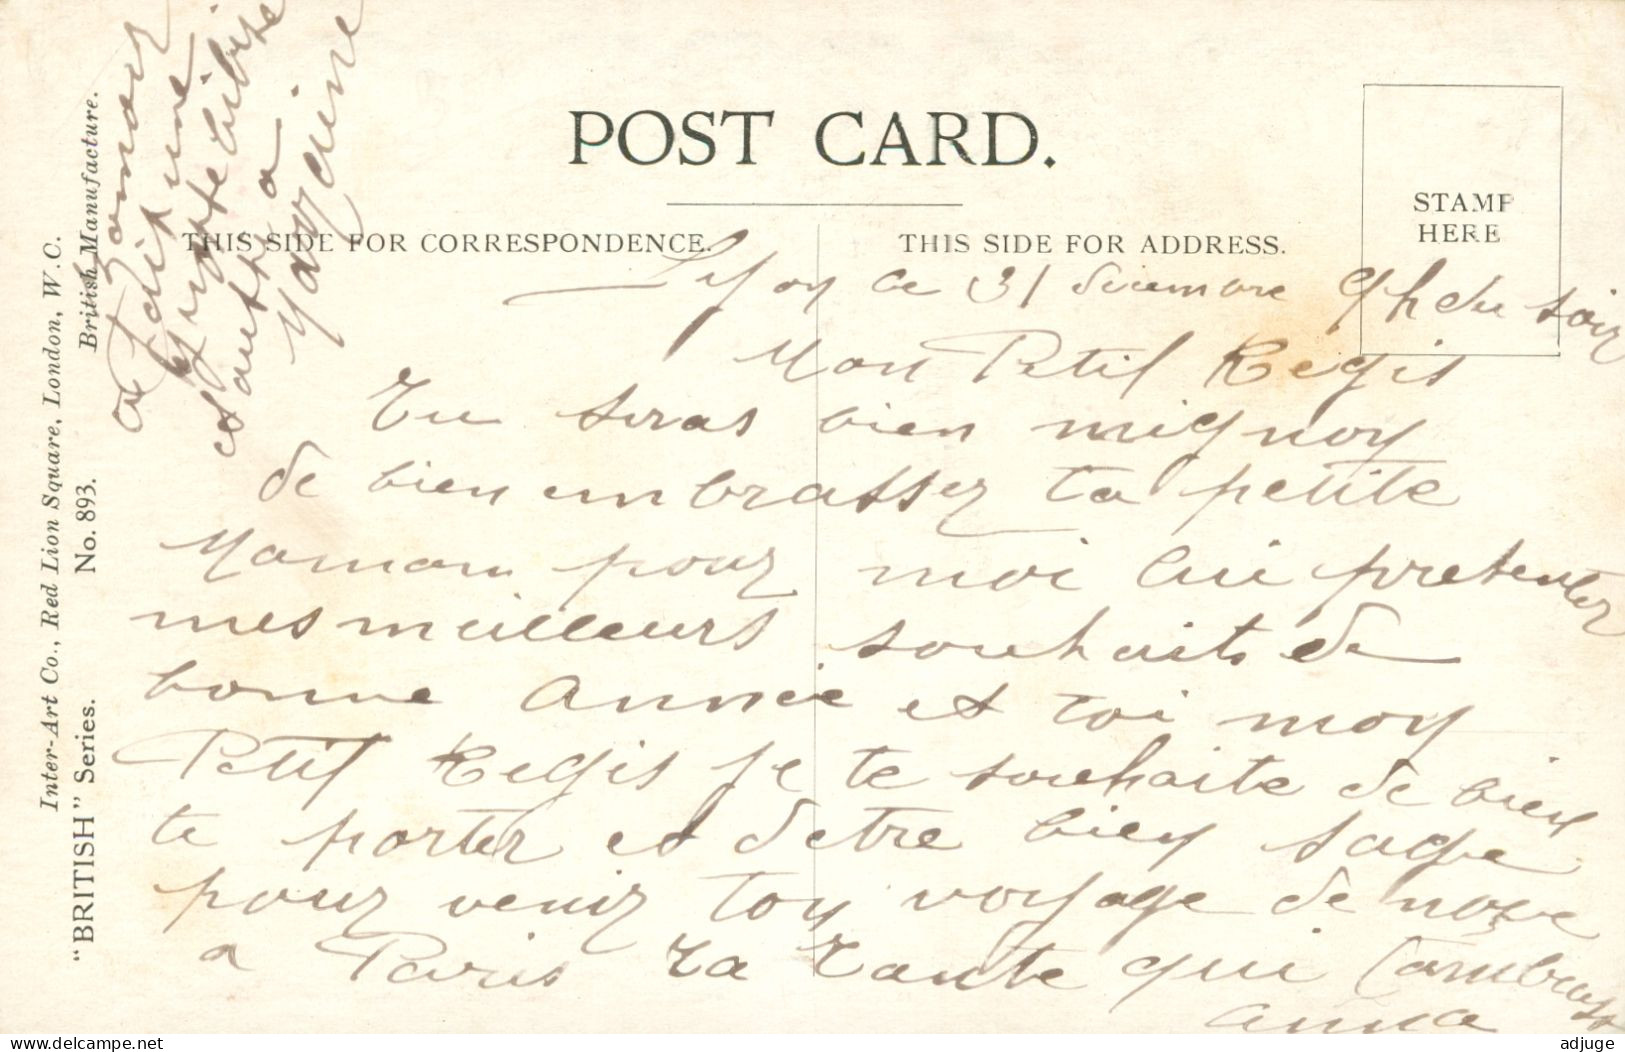 POST CARD.
STAMP
HERE
THIS SIDE FOR CORRESPONDENCE.
THIS SIDE FOR ADDRESS.
Inter-Art Co., Red Lion Square, London, W.C.
"BRITISH" Series. No. 893. British Manufacture.
Lyon ce 31 décembre 9h du soir
Mon Petit Regis
Tu seras bien mignon
de bien embrasser ta petite
Maman pour moi lui presenter
mes meilleurs souhaits de
bonne année et toi moy
Petit Regis je te souhaite de bien
te porter et detre biey sage
pour venir toy voyage de noce
a Paris ta tante qui t'ambrasse
Anna
fait une
grosse bibise
et autre a